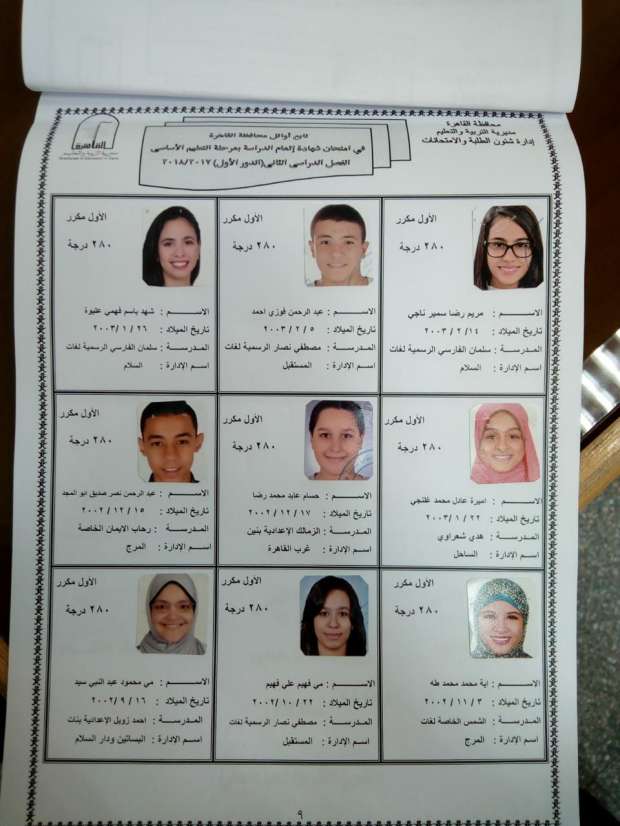 محافظة القاهرة
مديرية التربية والتعليم
إدارة شئون الطلبة والامتحانات
القاهرة
مديرية التربية والتعليم
تابع أوائل محافظة القاهرة
في امتحان شهادة إتمام الدراسة بمرحلة التعليم الأساسي
الفصل الدراسي الثاني(الدور الأول) ٢٠١٨/٢٠١٧
الأول مكرر
٢٨٠ درجة
الاســـــم : مريم رضا سمير ناجي
تاريخ الميلاد : ٢٠٠٣ / ٢ / ١٤
المدرســة : سلمان الفارسي الرسمية لغات
اسـم الإدارة : السلام
الأول مكرر
٢٨٠ درجة
الاســـــم : عبد الرحمن فوزي احمد
تاريخ الميلاد : ٢٠٠٣ / ٢ / ٥
المدرســة : مصطفي نصار الرسمية لغات
اسـم الإدارة : المستقبل
الأول مكرر
٢٨٠ درجة
الاســـــم : شهد باسم فهمي عليوة
تاريخ الميلاد : ٢٠٠٣/ ١ / ٢٦
المدرســة : سلمان الفارسي الرسمية لغات
اسـم الإدارة : السلام
الأول مكرر
٢٨٠ درجة
الاســـــم : اميرة عادل محمد غلنجي
تاريخ الميلاد : ٢٠٠٣/ ١ / ٢٢
المدرســة : هدي شعراوي
اسـم الإدارة : الساحل
الأول مكرر
٢٨٠ درجة
الاســـــم : حسام عابد محمد رضا
تاريخ الميلاد : ٢٠٠٢ / ١٢ / ١٧
المدرســة : الزمالك الإعدادية بنين
اسـم الإدارة : غرب القاهرة
الأول مكرر
٢٨٠ درجة
الاســـــم : عبد الرحمن نصر صديق ابو المجد
تاريخ الميلاد : ٢٠٠٢ / ١٢ / ١٥
المدرســة : رحاب الايمان الخاصة
اسـم الإدارة : المرج
الأول مكرر
٢٨٠ درجة
الاســـــم : اية محمد محمد طه
تاريخ الميلاد : ٢٠٠٢ / ١١ / ٣
المدرســة : الشمس الخاصة لغات
اسـم الإدارة : المرج
الأول مكرر
٢٨٠ درجة
الاســـــم : مي فهيم علي فهيم
تاريخ الميلاد : ٢٠٠٢/ ١٠ / ٢٢
المدرســة : مصطفي نصار الرسمية لغات
اسـم الإدارة : المستقبل
الأول مكرر
٢٨٠ درجة
الاســـــم : مي محمود عبد النبي سيد
تاريخ الميلاد : ٢٠٠٢/ ٩ / ١٦
المدرســة : احمد زويل الإعدادية بنات
اسـم الإدارة : البساتين ودار السلام
٩